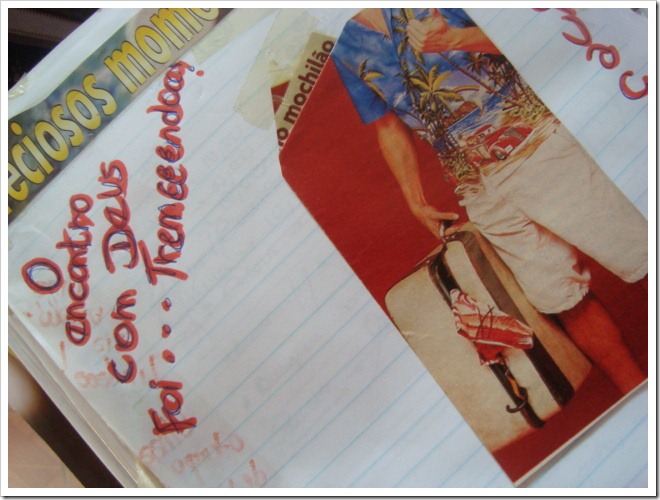 reciosos mome
O
encontro
com Deus
Foi... Tremeeendooo!
o mochilão